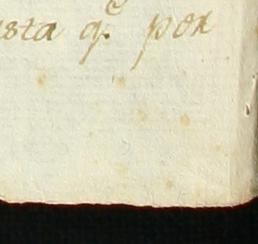 sta q.^e por